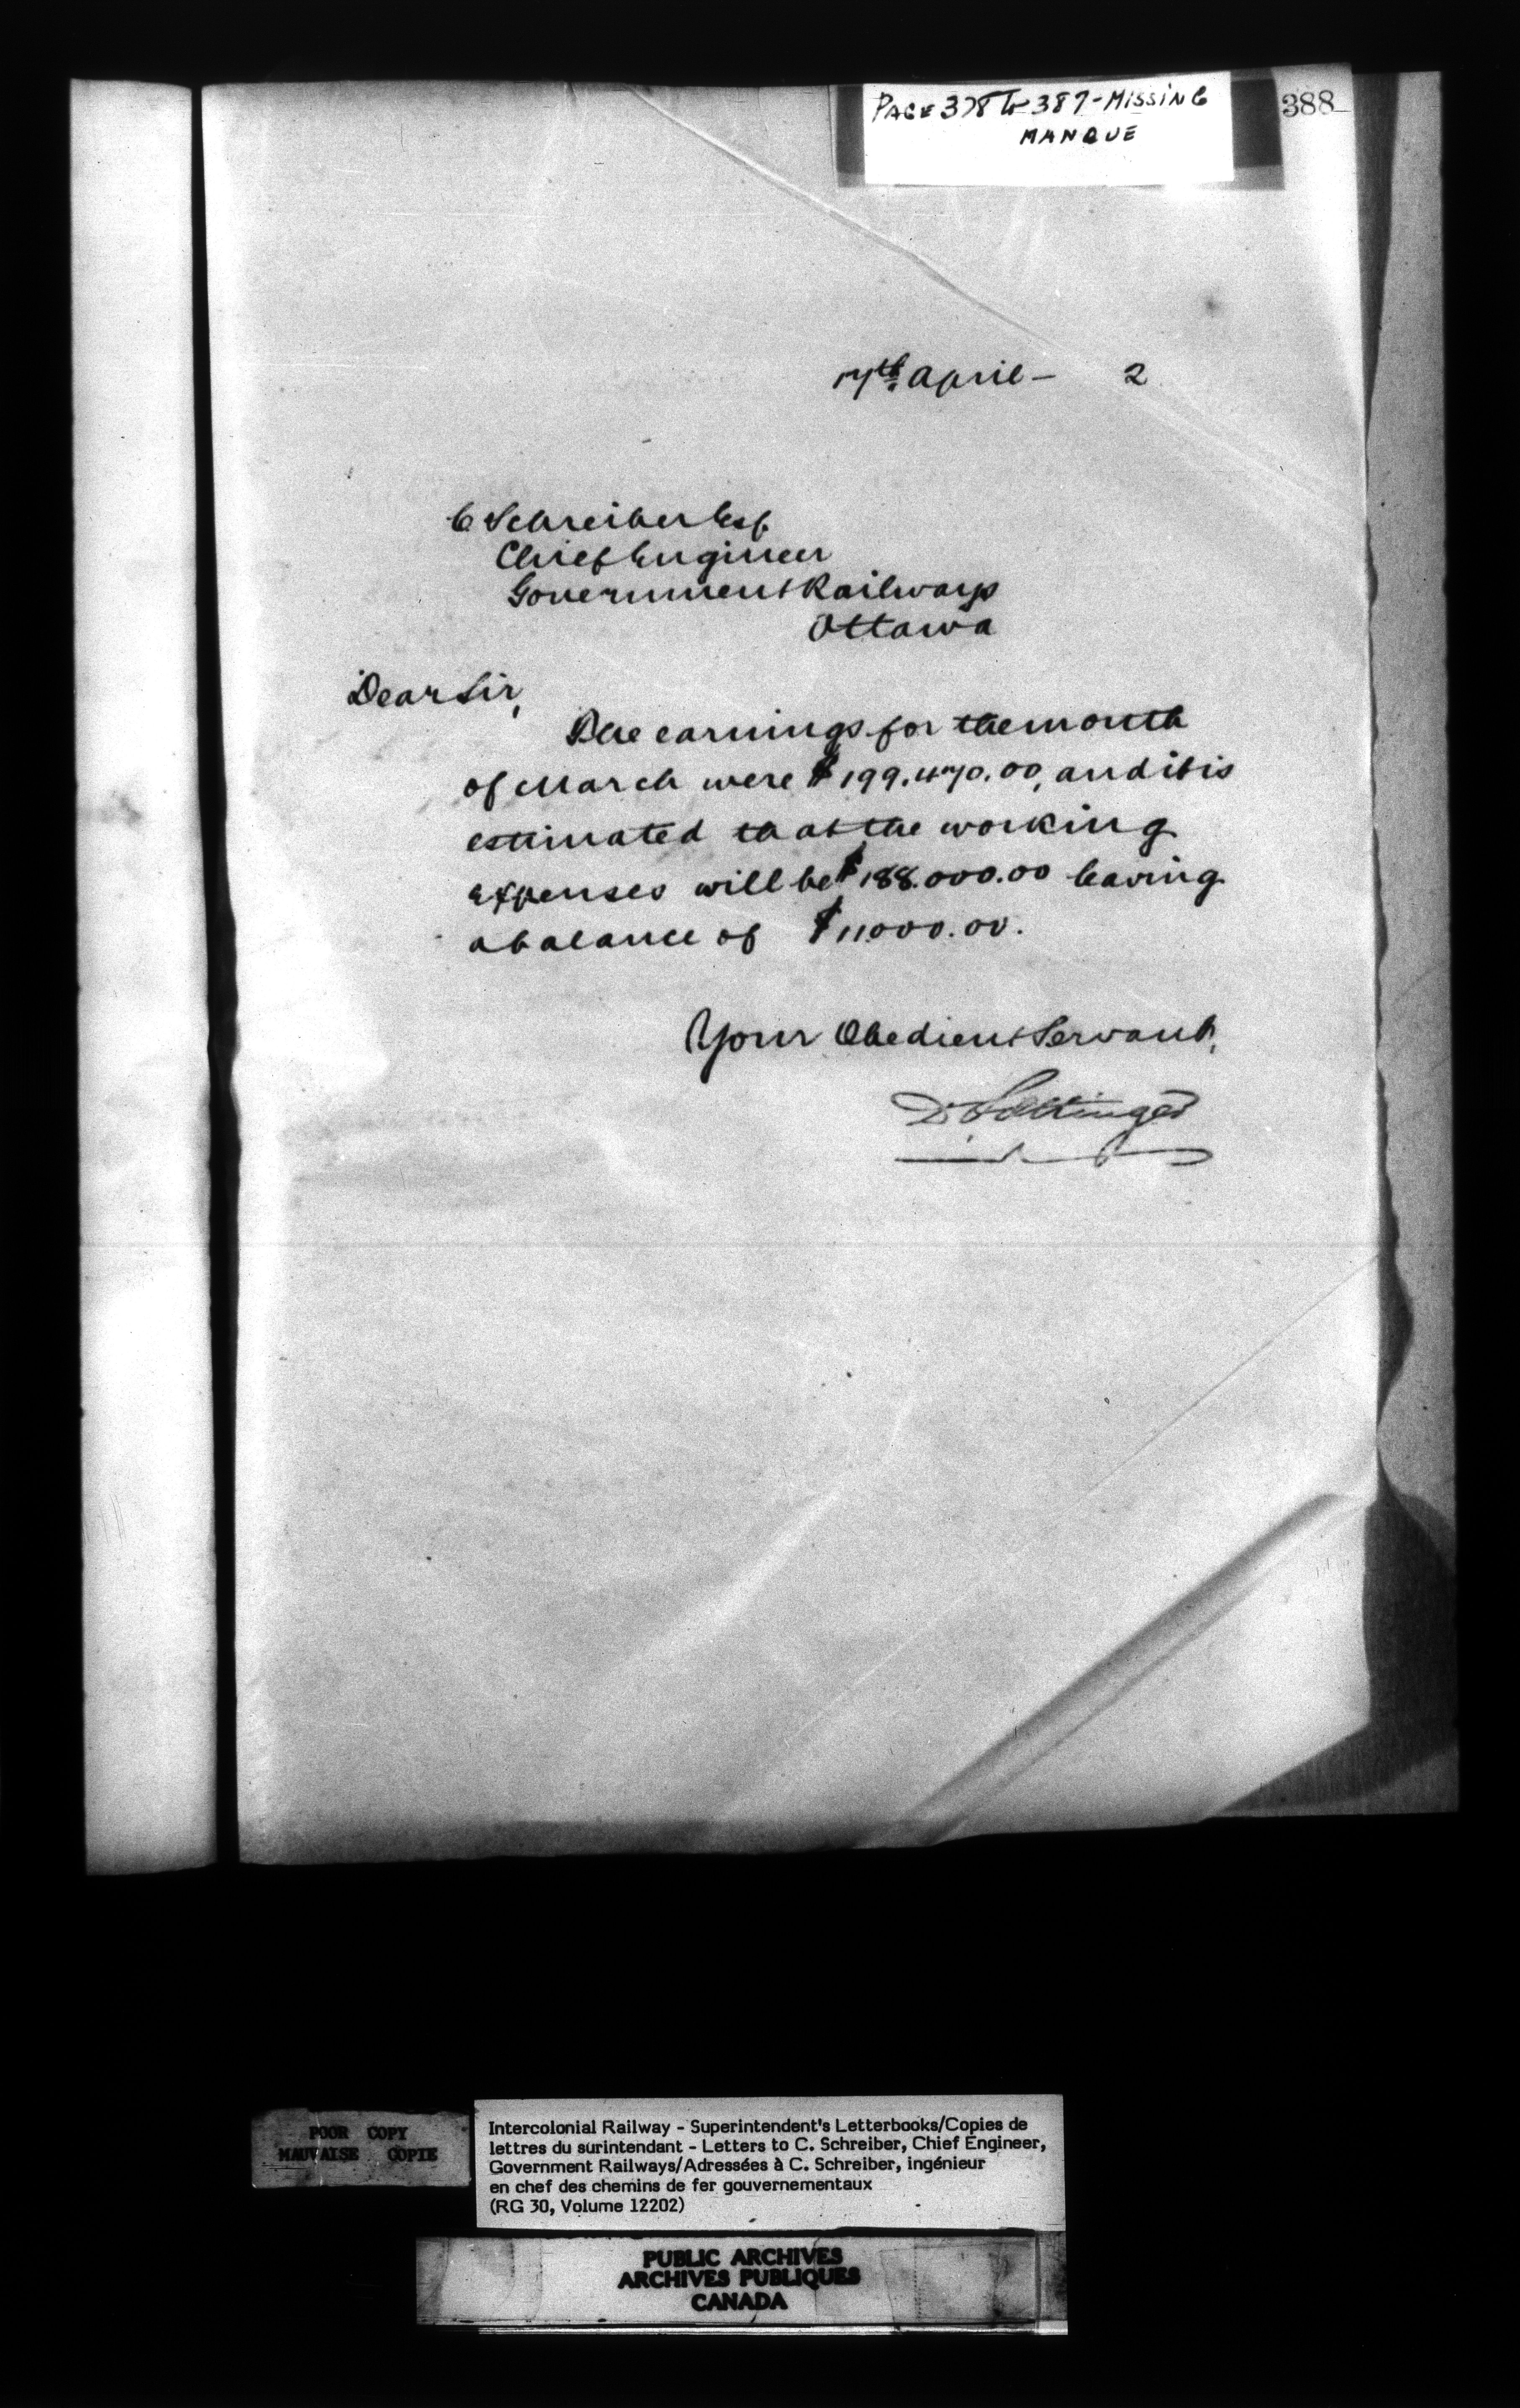 PAGE 378 to 387 - MISSING
MANQUE
388
17th April - 2
C Schreiber Esq
Chief Engineer
Government Railways
Ottawa
Dear Sir,
The earnings for the month
of March were $199.470.00, and it is
estimated that the working
expenses will be $188.000.00 leaving
a balance of $11000.00.
Your Obedient Servant,
D. Pottinger
POOR COPY
MAUVAISE COPIE
Intercolonial Railway - Superintendent's Letterbooks/Copies de
lettres du surintendant - Letters to C. Schreiber, Chief Engineer,
Government Railways/Adressées à C. Schreiber, ingénieur
en chef des chemins de fer gouvernementaux
(RG 30, Volume 12202)
PUBLIC ARCHIVES
ARCHIVES PUBLIQUES
CANADA